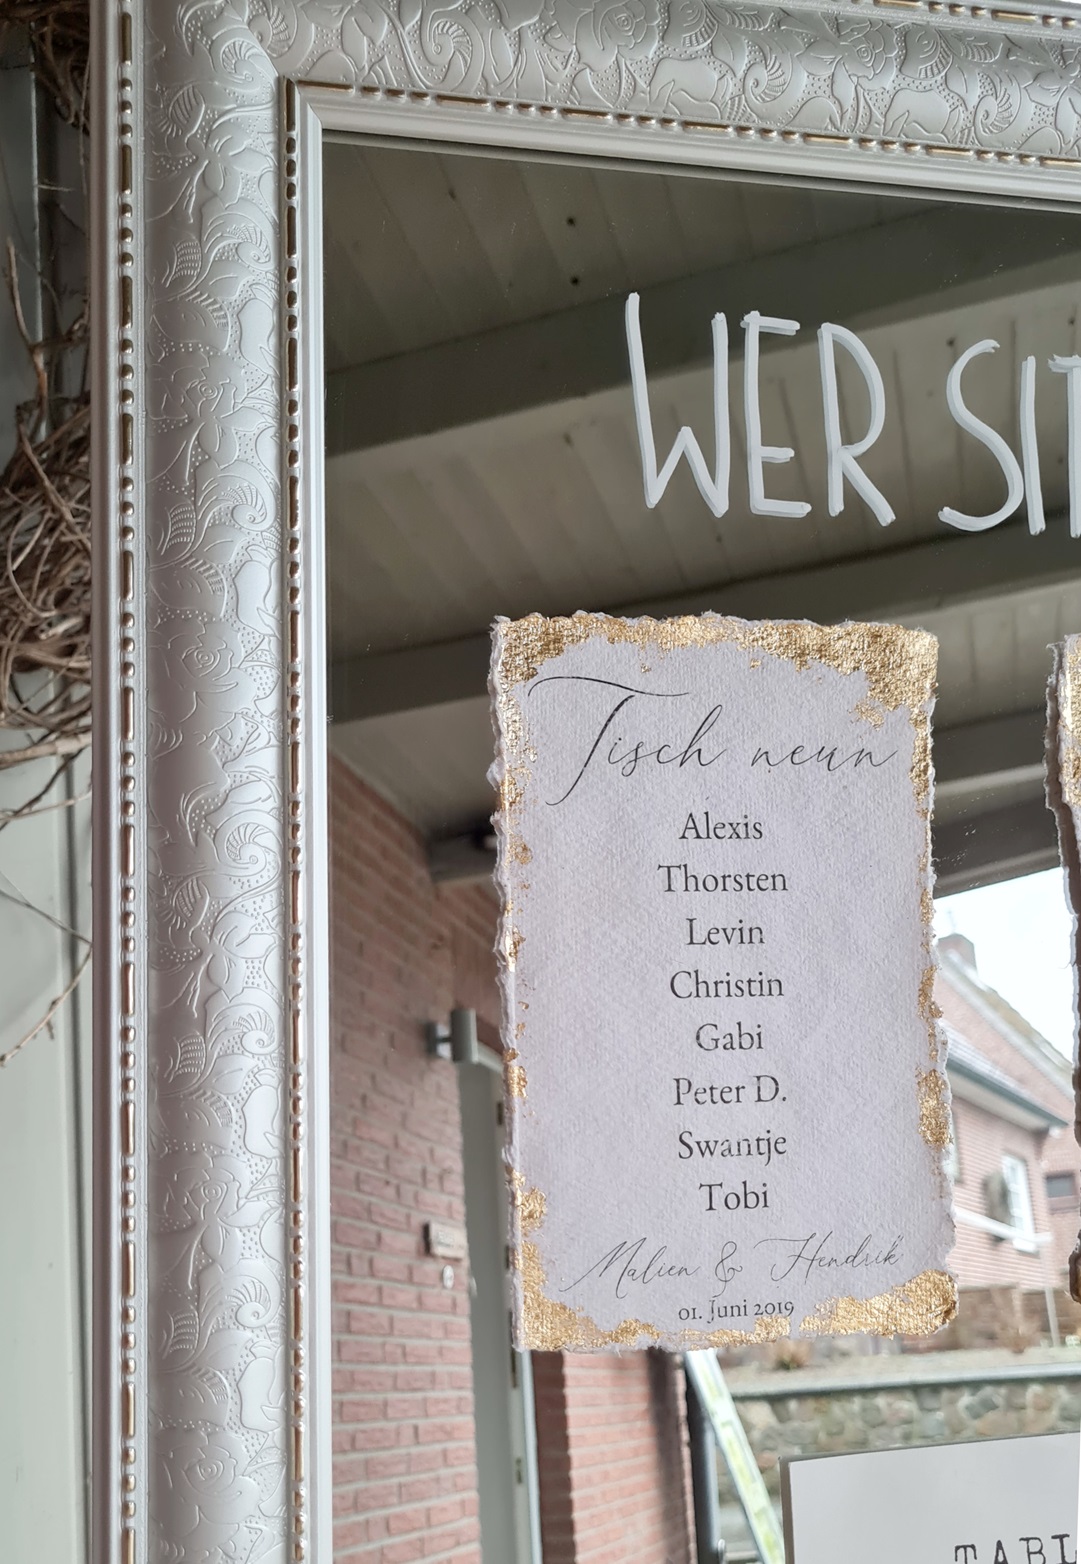 WER SIT
Tisch neun
Alexis
Thorsten
Levin
Christin
Gabi
Peter D.
Swantje
Tobi
Malien & Hendrik
01. Juni 2019
TABL